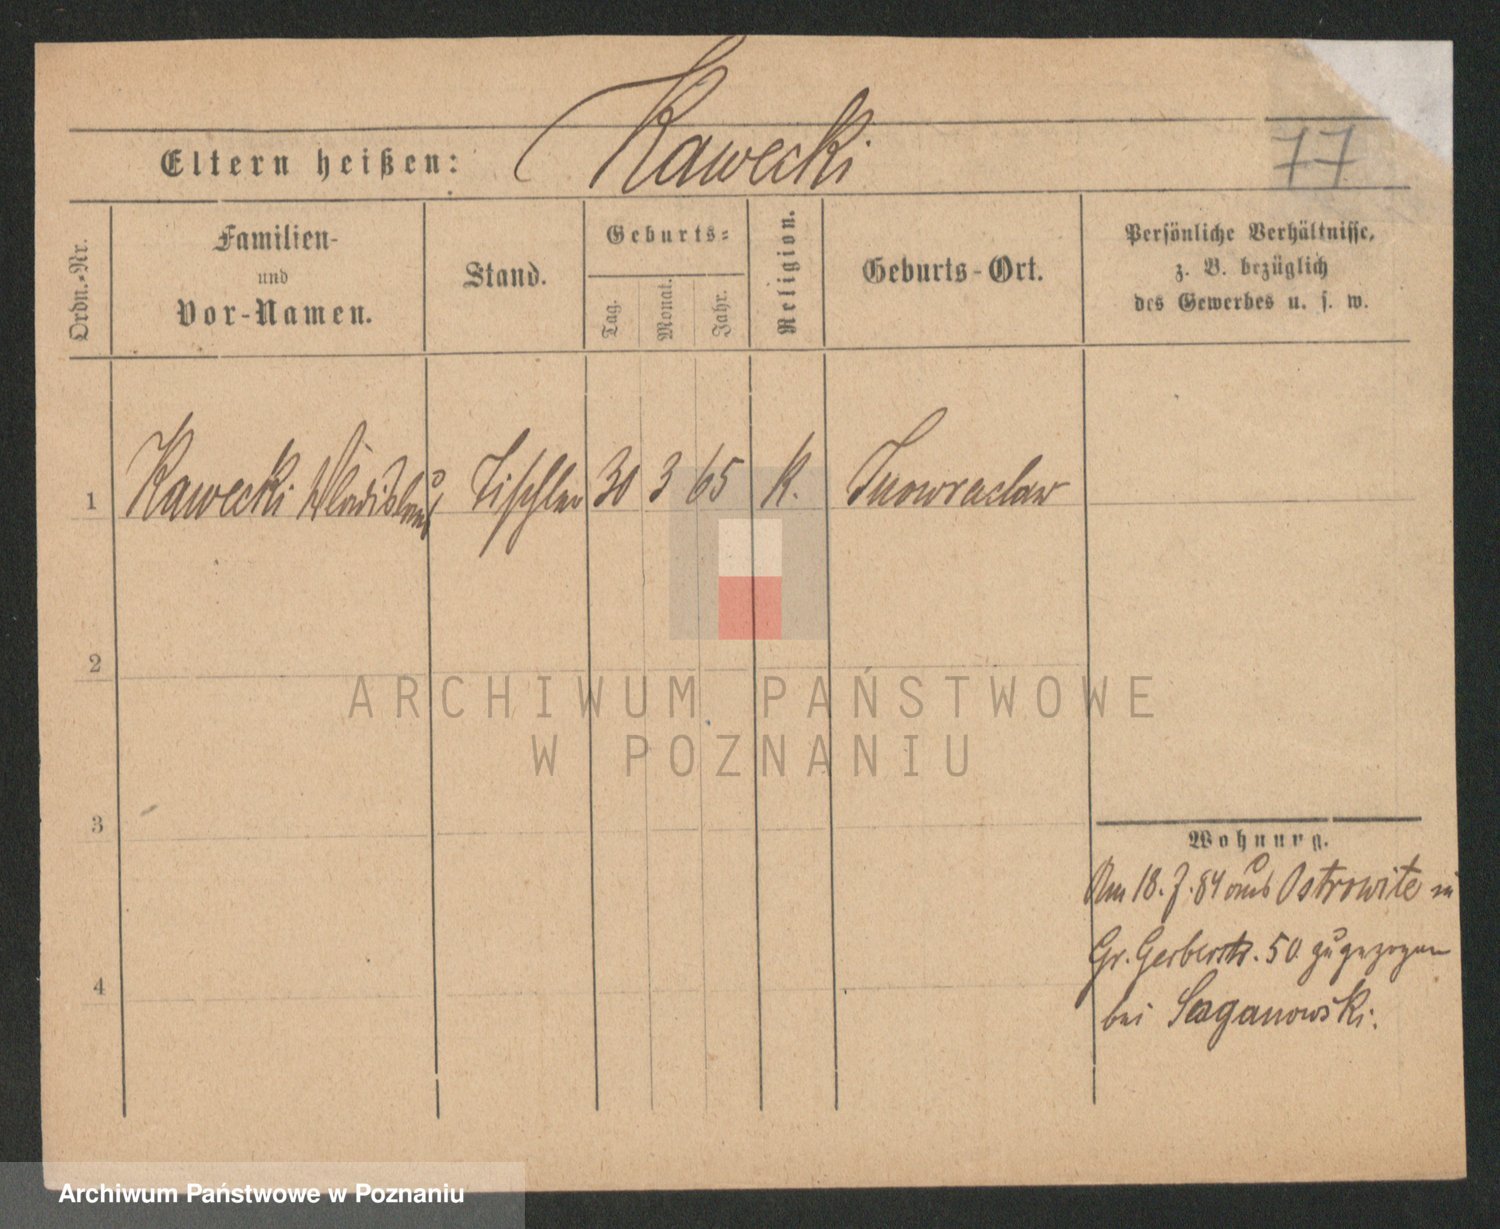 Kawecki
Eltern heißen:
77
Ordn.-Nr.
Familien-
und
Vor-Namen.
Stand.
Geburts-
Tag.
Monat.
Jahr.
Religion.
Geburts-Ort.
Persönliche Verhältnisse,
z. B. bezüglich
des Gewerbes u. s. w.
1 Kawecki Wladislaus Tischler 30 3 65 K. Inowraclaw
2
3
4
Wohnung.
Am 18. 7. 84 aus Ostrowite in
Gr. Gerberstr. 50 zugezogen
bei Saganowski.
ARCHIWUM PAŃSTWOWE
W POZNANIU
Archiwum Państwowe w Poznaniu